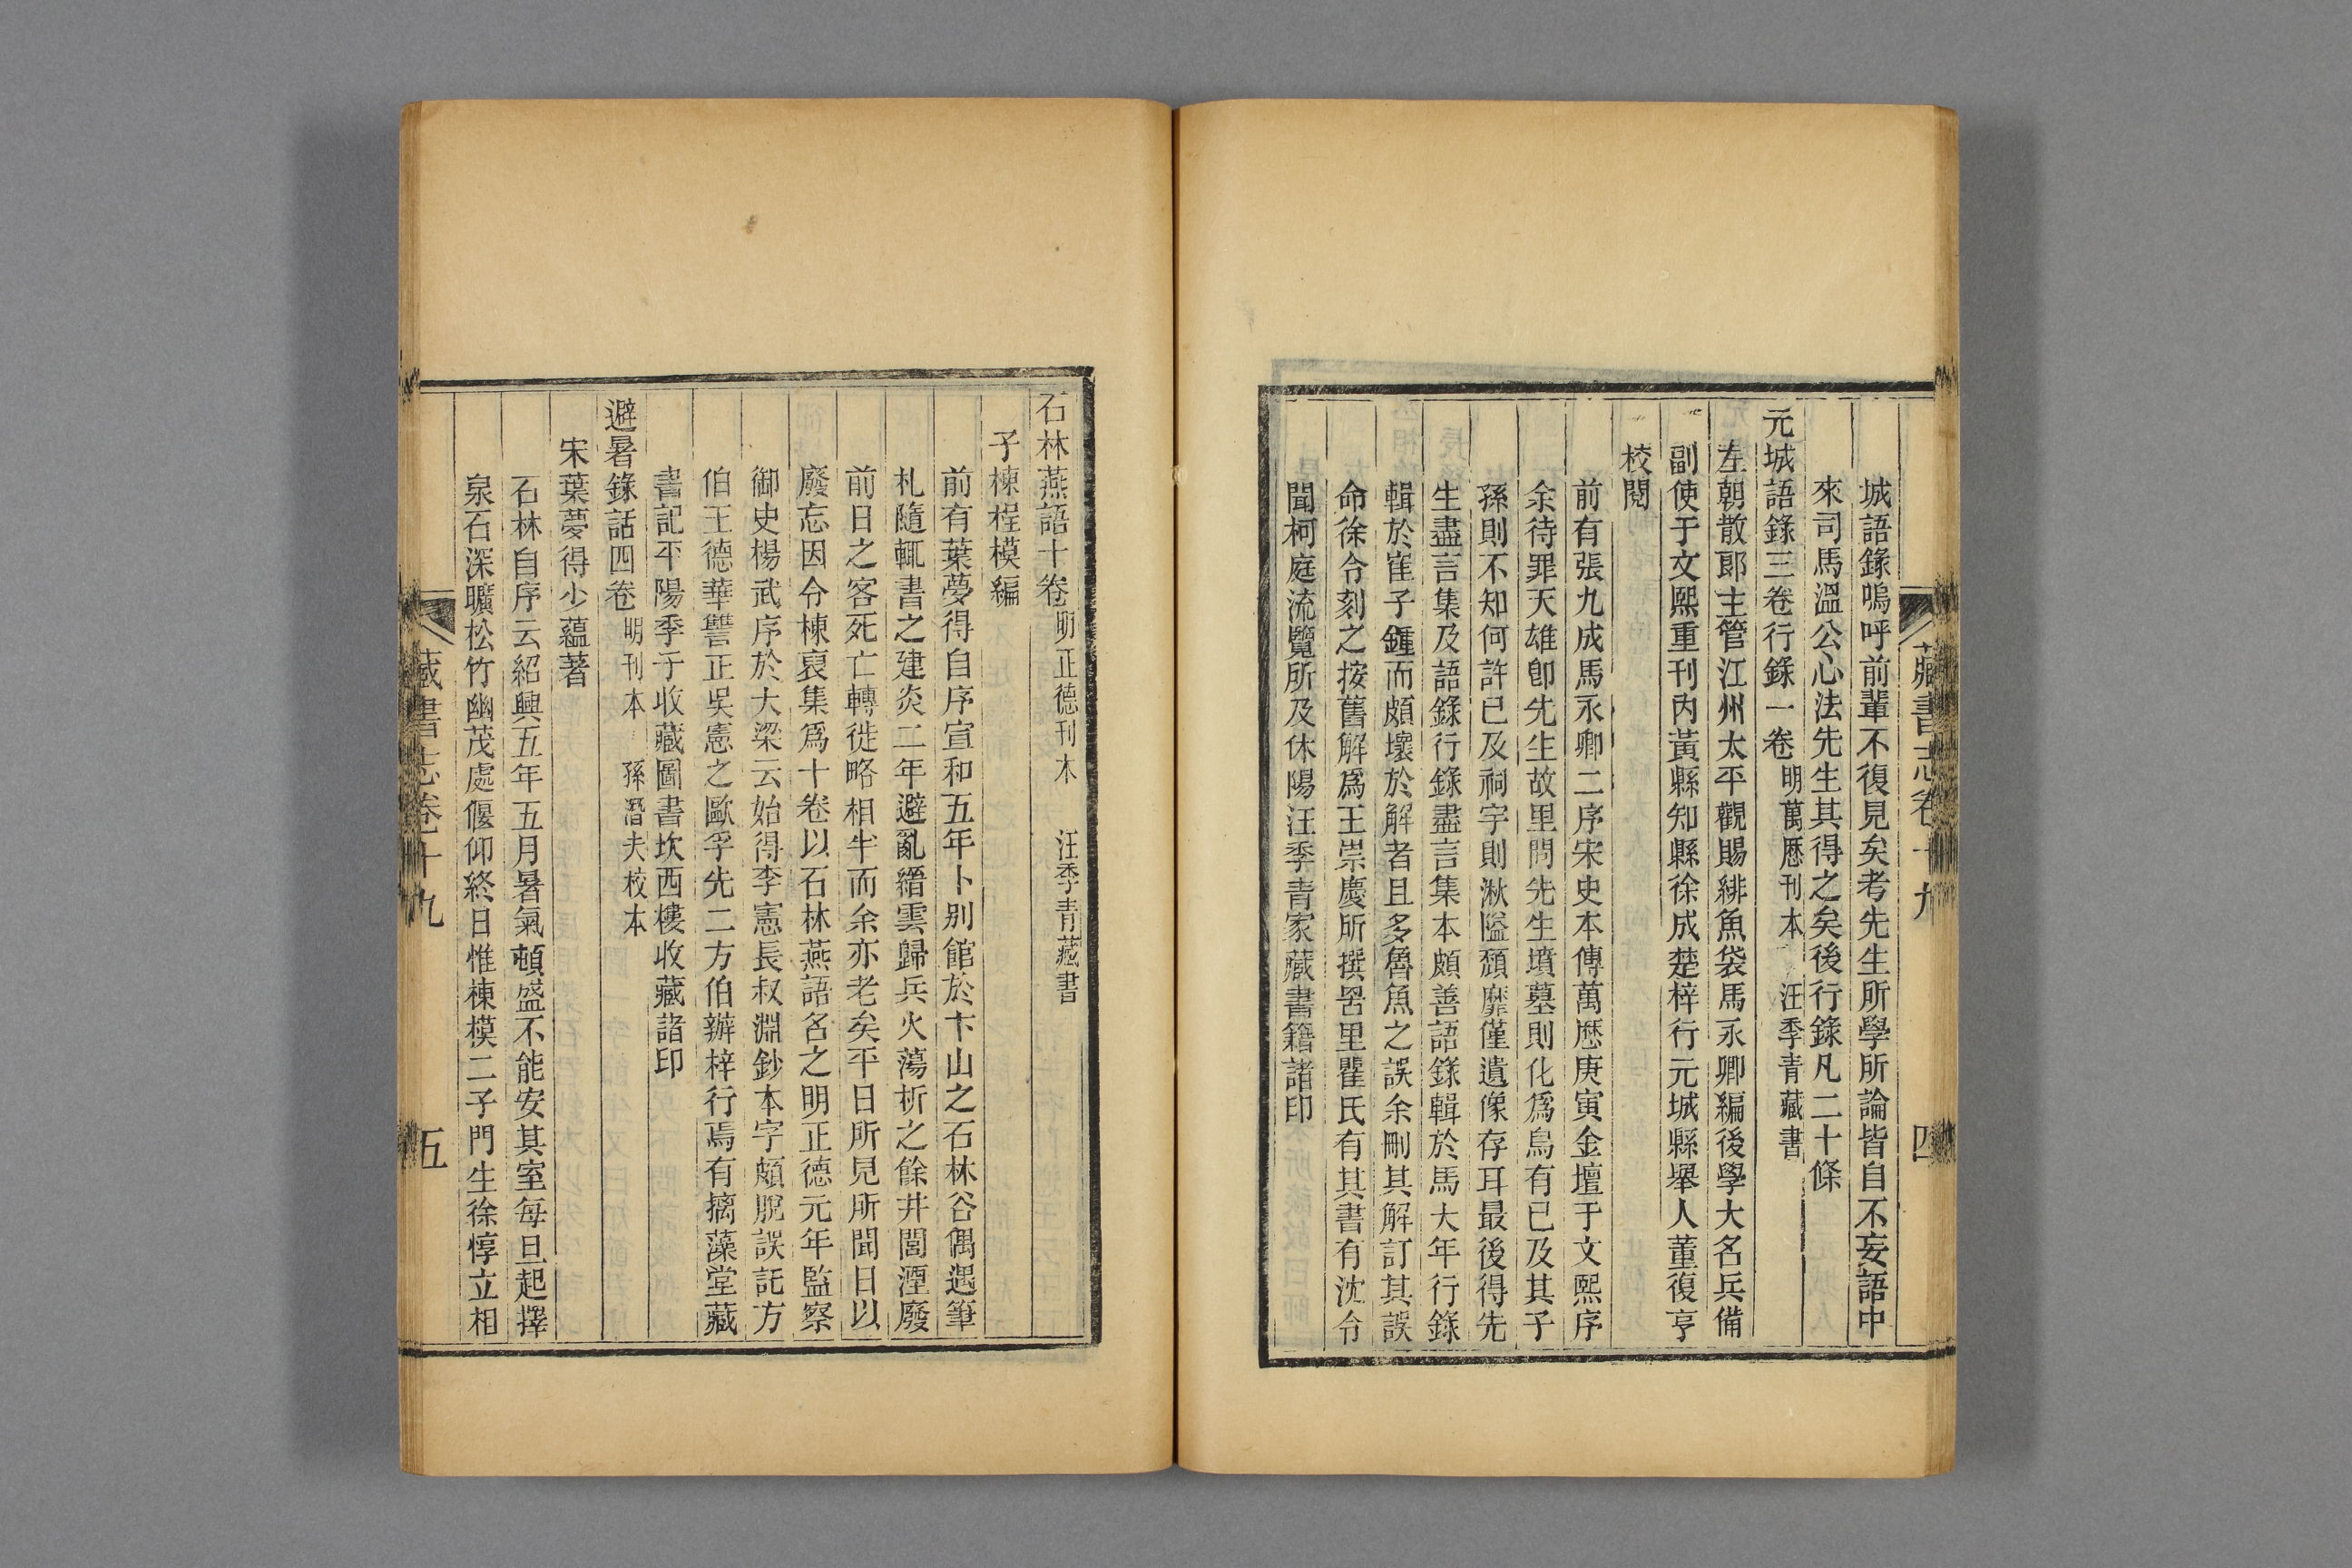 城語錄嗚呼前輩不復見矣考先生所學所論皆自不妄語中
來司馬溫公心法先生其得之矣後行錄凡二十條
元城語錄三卷行錄一卷 明萬歷刊本 汪季青藏書
左朝散郞主管江州太平觀賜緋魚袋馬永卿編後學大名兵備
副使于文熙重刊內黃縣知縣徐成楚梓行元城縣舉人董復亨
校閱
前有張九成馬永卿二序宋史本傳萬歷庚寅金壇于文熙序
余待罪天雄卽先生故里問先生墳墓則化爲烏有已及其子
孫則不知何許已及祠宇則湫隘頽靡僅遺像存耳最後得先
生盡言集及語錄行錄盡言集本頗善語錄輯於馬大年行錄
輯於崔子鍾而頗壞於解者且多魯魚之誤余刪其解訂其誤
命徐令刻之按舊解爲王崇慶所撰罟里瞿氏有其書有沈令
聞柯庭流覽所及休陽汪季青家藏書籍諸印
藏書志卷十九 四
石林燕語十卷 明正德刊本 汪季青藏書
子棟桯模編
前有葉夢得自序宣和五年卜別館於卞山之石林谷偶遇筆
札隨輒書之建炎二年避亂縉雲歸兵火蕩析之餘井閭湮廢
前日之客死亡轉徙略相半而余亦老矣平日所見所聞日以
廢忘因令棟裒集爲十卷以石林燕語名之明正德元年監察
御史楊武序於大梁云始得李憲長叔淵鈔本字頗脫誤託方
伯王德華讐正吳憲之歐孚先二方伯辦梓行焉有摛藻堂藏
書記平陽季子收藏圖書坎西樓收藏諸印
避暑錄話四卷 明刊本 孫潛夫校本
宋葉夢得少蘊著
石林自序云紹興五年五月暑氣頓盛不能安其室每旦起擇
泉石深曠松竹幽茂處偃仰終日惟棟模二子門生徐惇立相
藏書志卷十九 五